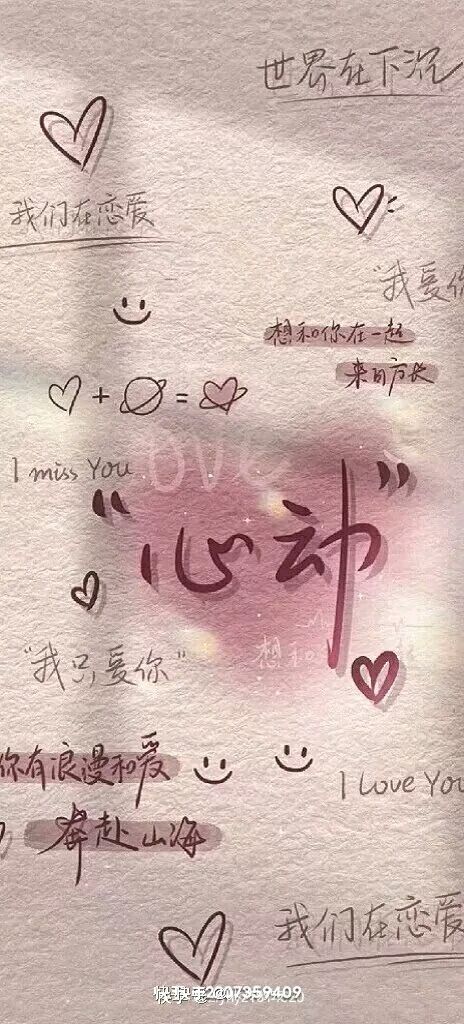 世界在下沉
我们在恋爱
"我爱你
想和你在一起
来日方长
+ =
I miss You
OVE
"心动"
想和
"我只爱你"
你有浪漫和爱
I Love You
奔赴山海
我们在恋爱
快手